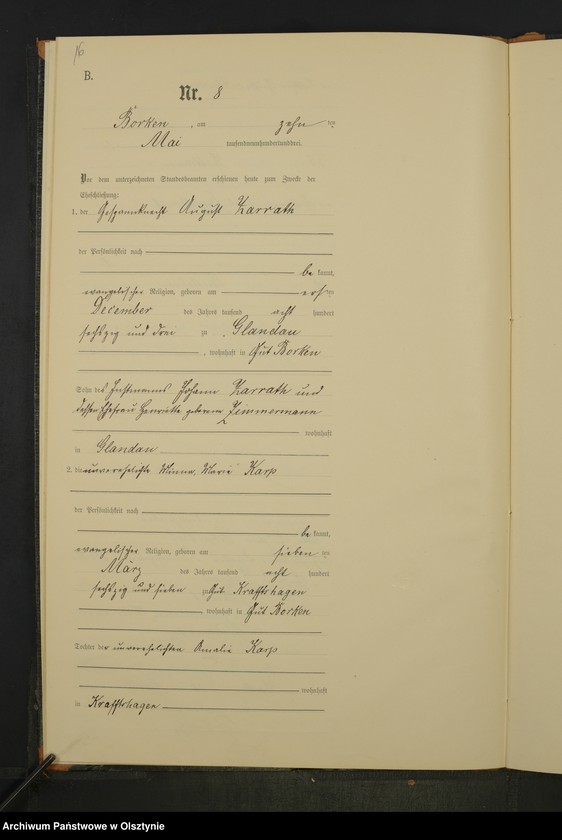 16
B.
Nr. 8
Borken, am zehn ten
Mai tausendneunhundertunddrei.
Vor dem unterzeichneten Standesbeamten erschienen heute zum Zwecke der
Eheschließung:
1. der Gespannknecht August Karrath
der Persönlichkeit nach
be kannt,
evangelischer Religion, geboren am ersten
December des Jahres tausend acht hundert
sechszig und drei zu Glandau
, wohnhaft in Gut Borken
Sohn des Instmanns Johann Karrath und
dessen Ehefrau Henriette geborene Zimmermann
wohnhaft
in Glandau
2. die unverehelichte Minna Marie Karp
der Persönlichkeit nach
be kannt,
evangelischer Religion, geboren am sieben ten
März des Jahres tausend acht hundert
sechszig und sieben zu Gut Kraffshagen
, wohnhaft in Gut Borken
Tochter der unverehelichten Amalie Karp
wohnhaft
in Krafftshagen
Archiwum Państwowe w Olsztynie